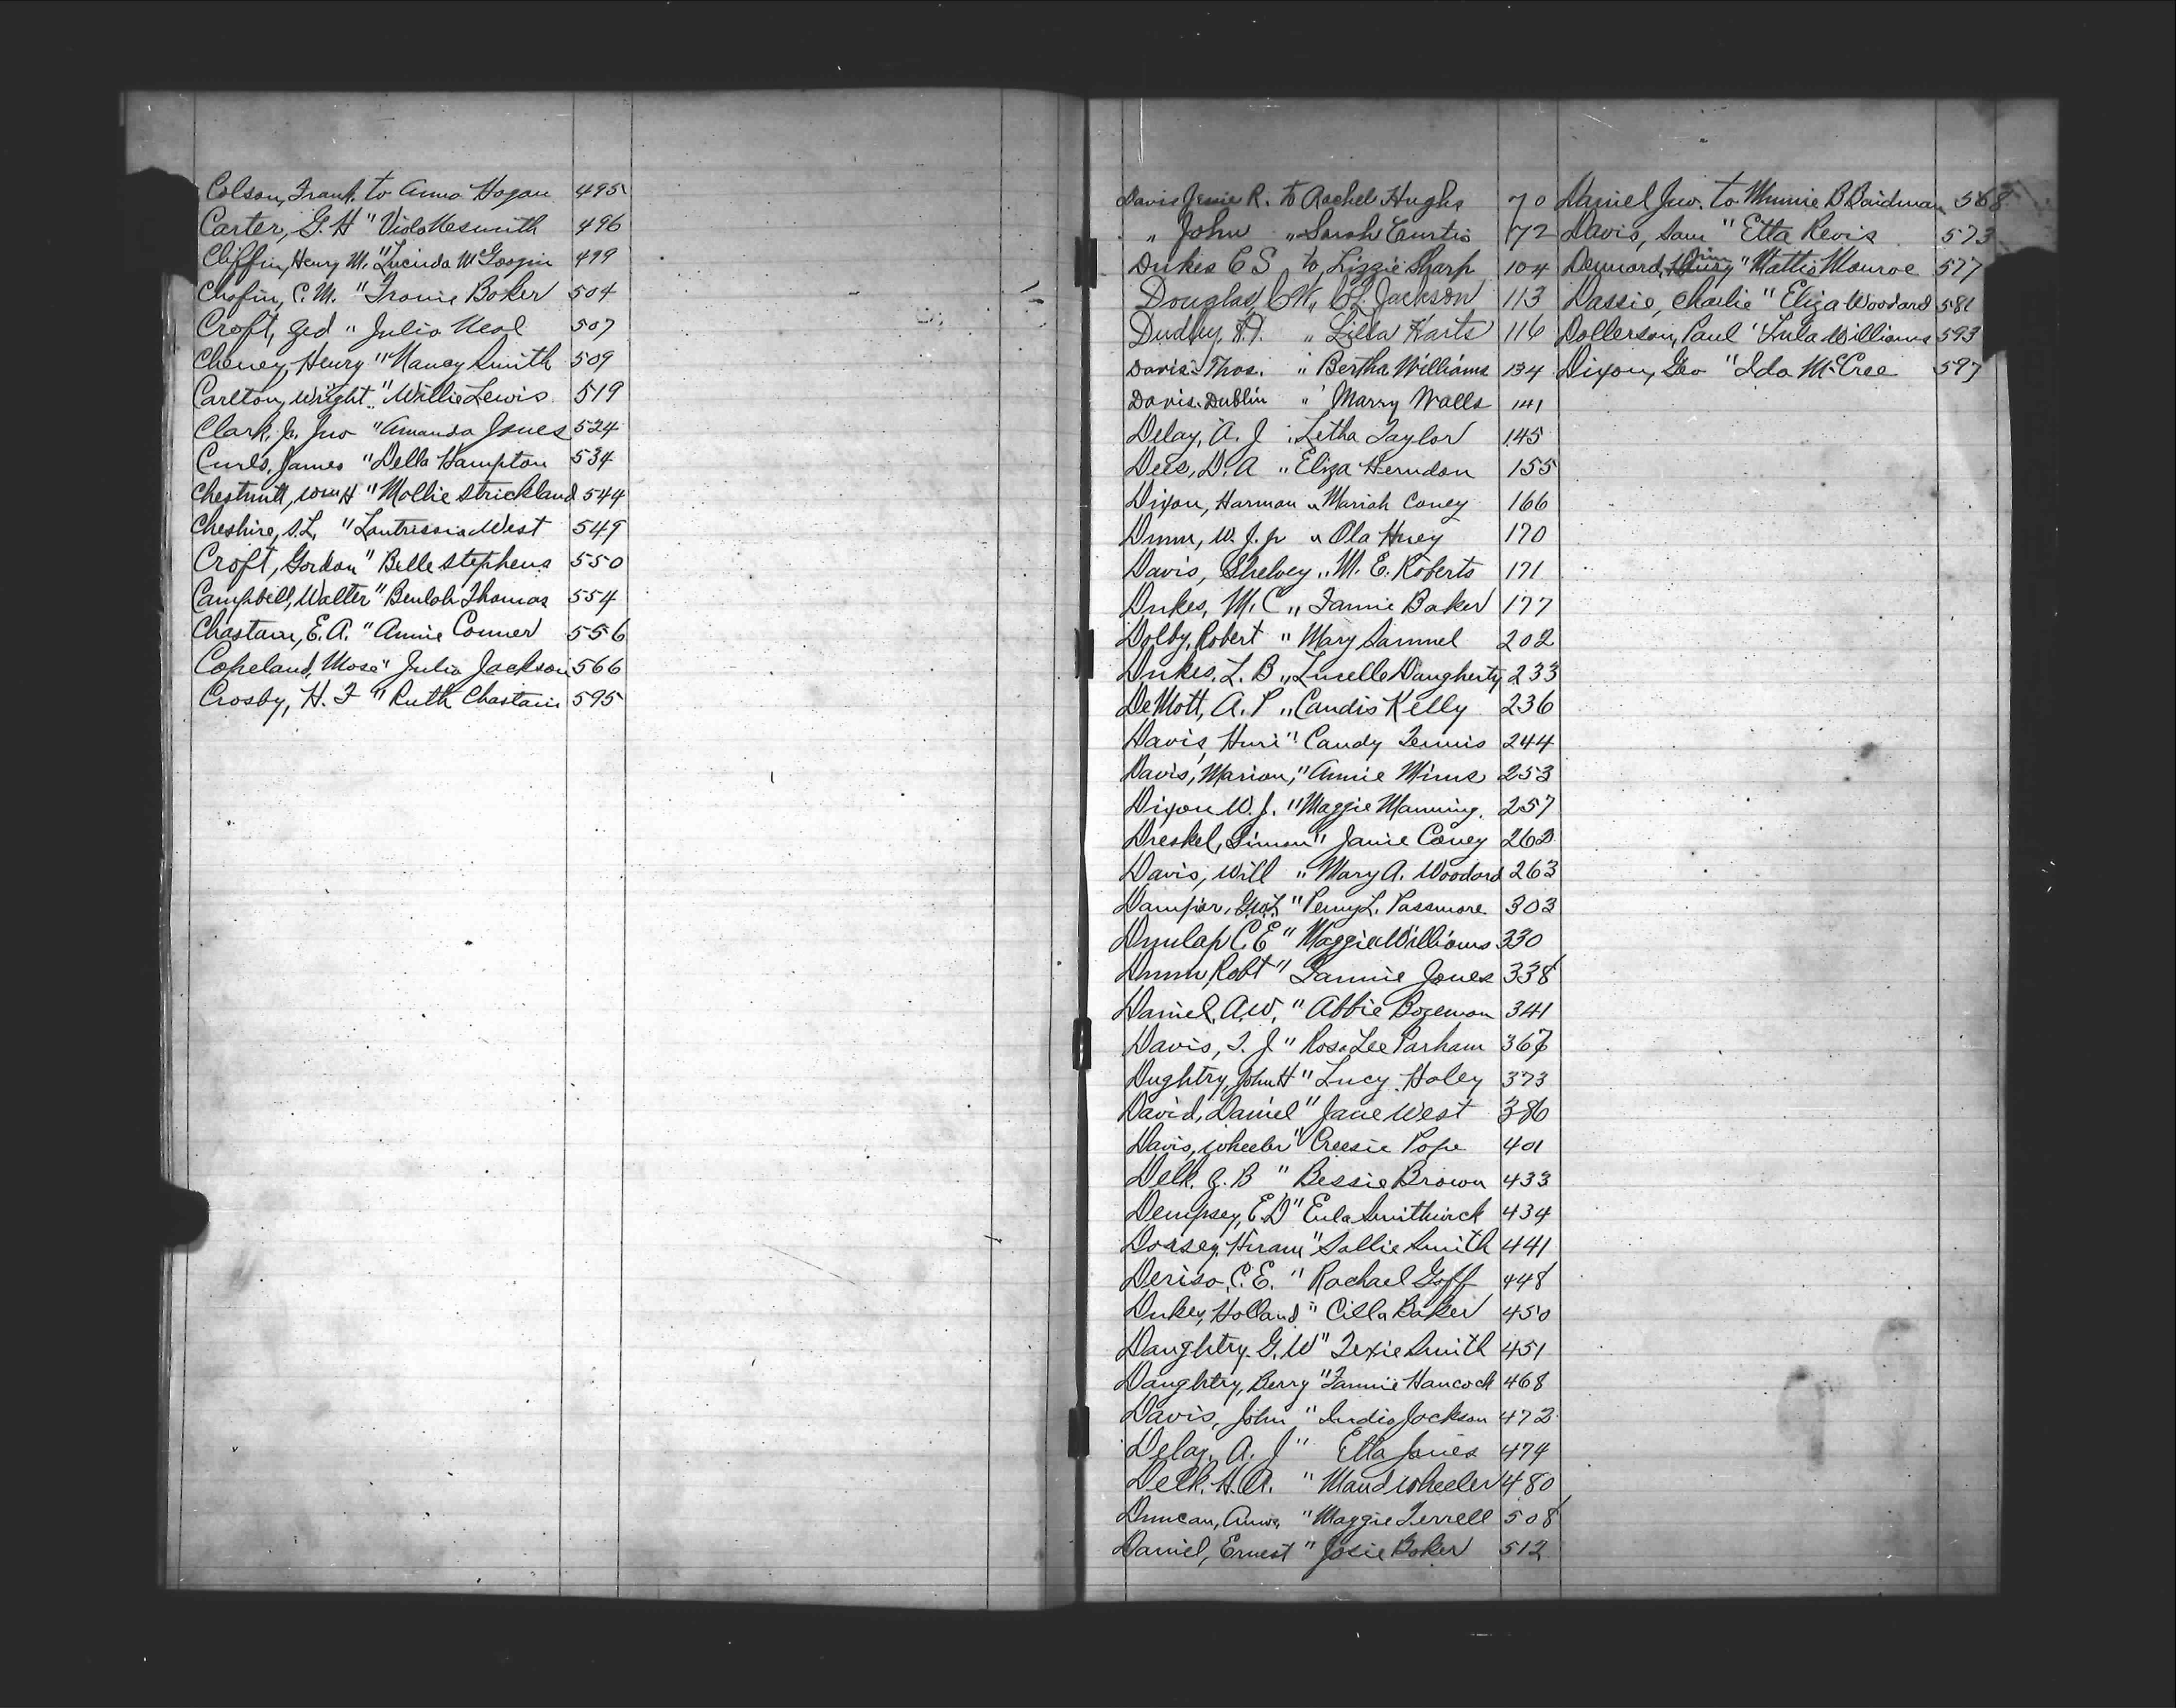 Colson, Frank. to Anna Hogan 495
Carter, G. H " Viola Nesmith 496
Cliffin, Henry M. " Lucinda McGoogin 499
Chofin, C. M. " Fronie Baker 504
Croft, Ged " Julia Neal 507
Cheney, Henry " Nancy Smith 509
Carlton, Wright " Willie Lewis 519
Clark, Jno " Amanda Jones 524
Curls, James " Della Hampton 534
Chestnutt, Wm H " Mollie Strickland 544
Cheshire, S. L. " West 549
Croft, Gordon " Belle Stephens 550
Campbell, Walter " Beulah Thomas 554
Chastain, E. A. " Annie Conner 556
Copeland, Mose " Julia Jackson 566
Crosby, H. F " Ruth Chastain 595
Davis Jessie R. to Rachel Hughs 70
" John " Sarah Curtis 72
Dukes C S to Lizzie Sharp 104
Douglas, C W " C. L. Jackson 113
Dudley, H. " Lilla Harts 116
Davis Thos. " Bertha Williams 134
Davis Dublin " Marry Walls 141
Delay, A. J " Letha Taylor 145
Dees, D. A " Eliza Herndon 155
Dixon, Harman " Mariah Coney 166
Dunn, W. J. Jr " Ola Huey 170
Davis, Shelvey " M. E. Roberts 171
Dukes, M. C " Fannie Baker 177
Dolby, Robert " Mary Samuel 202
Dukes, L. B " Lucelle Daugherty 233
DeMott, A. P " Candis Kelly 236
Davis, Huri " Candy Tennis 244
Davis, Marion, " Annie Mims 253
Dixon W. J. " Maggie Manning. 257
Dreskel, Simon " Janie Coney 262
Davis, Will " Mary A. Woodard 263
Dampier, Geo. L " Penny L. Passmore 303
Dunlap C. E " Maggie Williams 330
Dunn, Robt " Fannie Jones 338
Daniel, A. W. " Abbie Bozeman 341
Davis, T. J " Rosa Lee Parham 367
Dughtry, John H " Lucy Haley 373
David, Daniel " Jane West 386
Davis, Wheeler " Creesie Pope 401
Delk. J. B " Bessie Brown 433
Dempsey, E. D " Eula Smithwick 434
Dorsey, Hiram " Sallie Smith 441
Deriso, C. E. " Rachael Goff 448
Dukes, Holland " Cilla Baker 450
Daughtry. G. W " Texie Smith 451
Daughtry, Berry " Fannie Hancock 468
Davis, John, " India Jackson 472
Delay, A. J " Etta Jones 474
Delk. H. A. " Maud Wheeler 480
Duncan, Amos, " Maggie Terrell 508
Daniel, Ernest " Josie Baker 512
Daniel Jno. to Minnie B Boidman 568
Davis, Sam " Etta Revis 573
Dennard, " Mattie Monroe 577
Dassie, Charlie " Eliza Woodard 581
Dollerson, Paul " Lula Williams 593
Dixon, Geo " Ida McCree 597